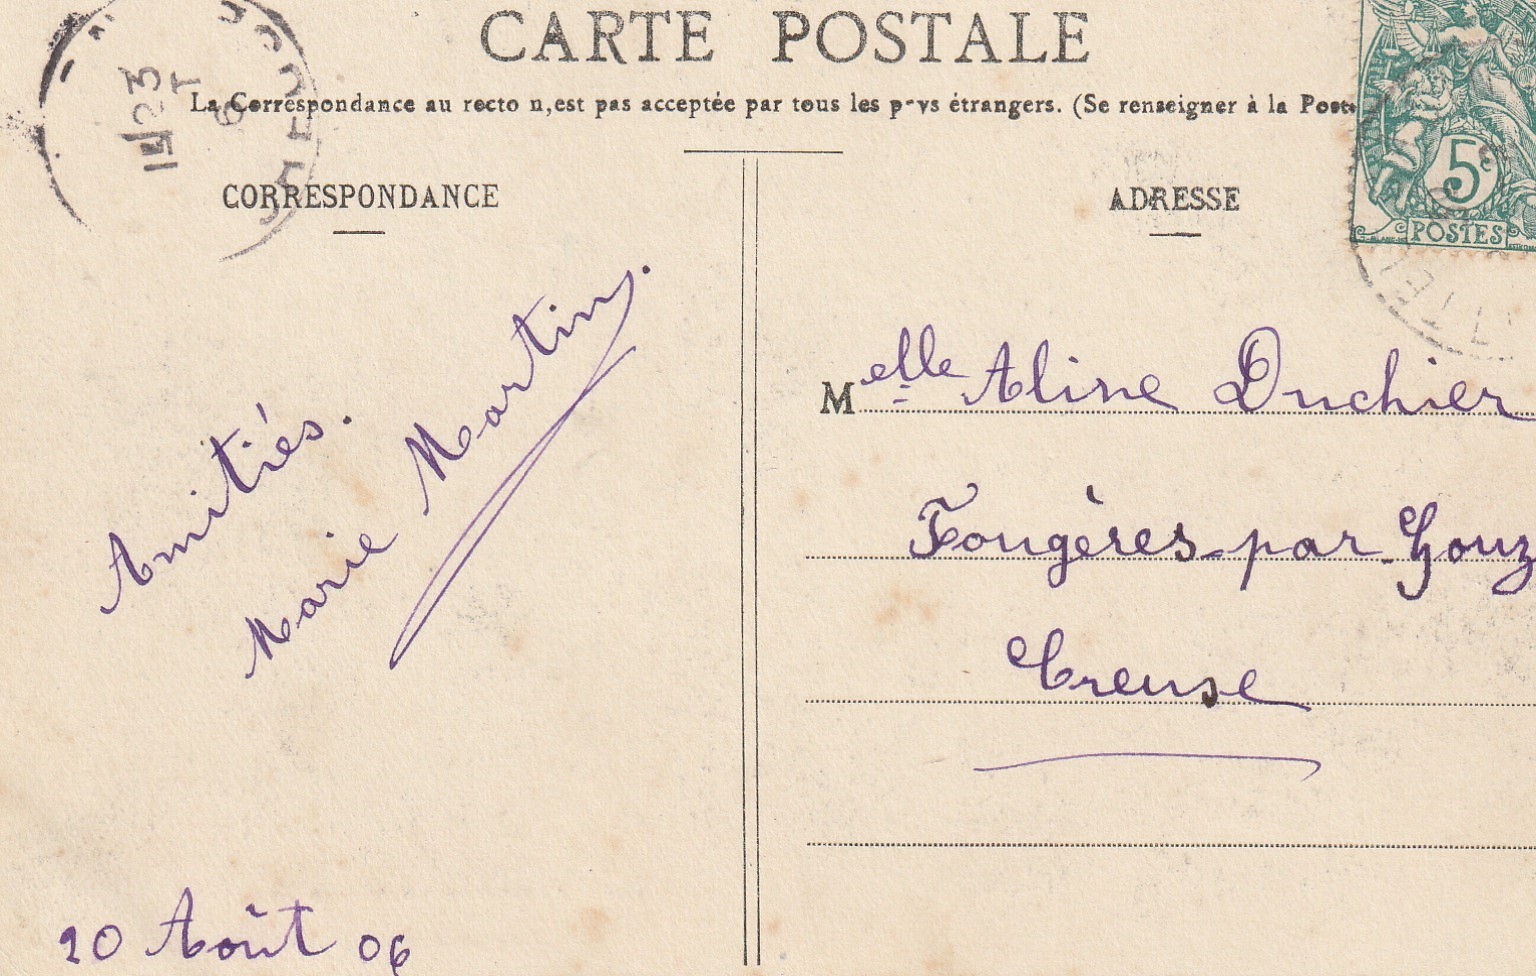 CARTE POSTALE
La Correspondance au recto n,est pas acceptée par tous les pays étrangers. (Se renseigner à la Poste
CORRESPONDANCE
ADRESSE
5c
POSTES
Amitiés.
Marie Martin.
Melle Aline Duchier
Fougères-par-Gouz
Creuse
20 Août 06